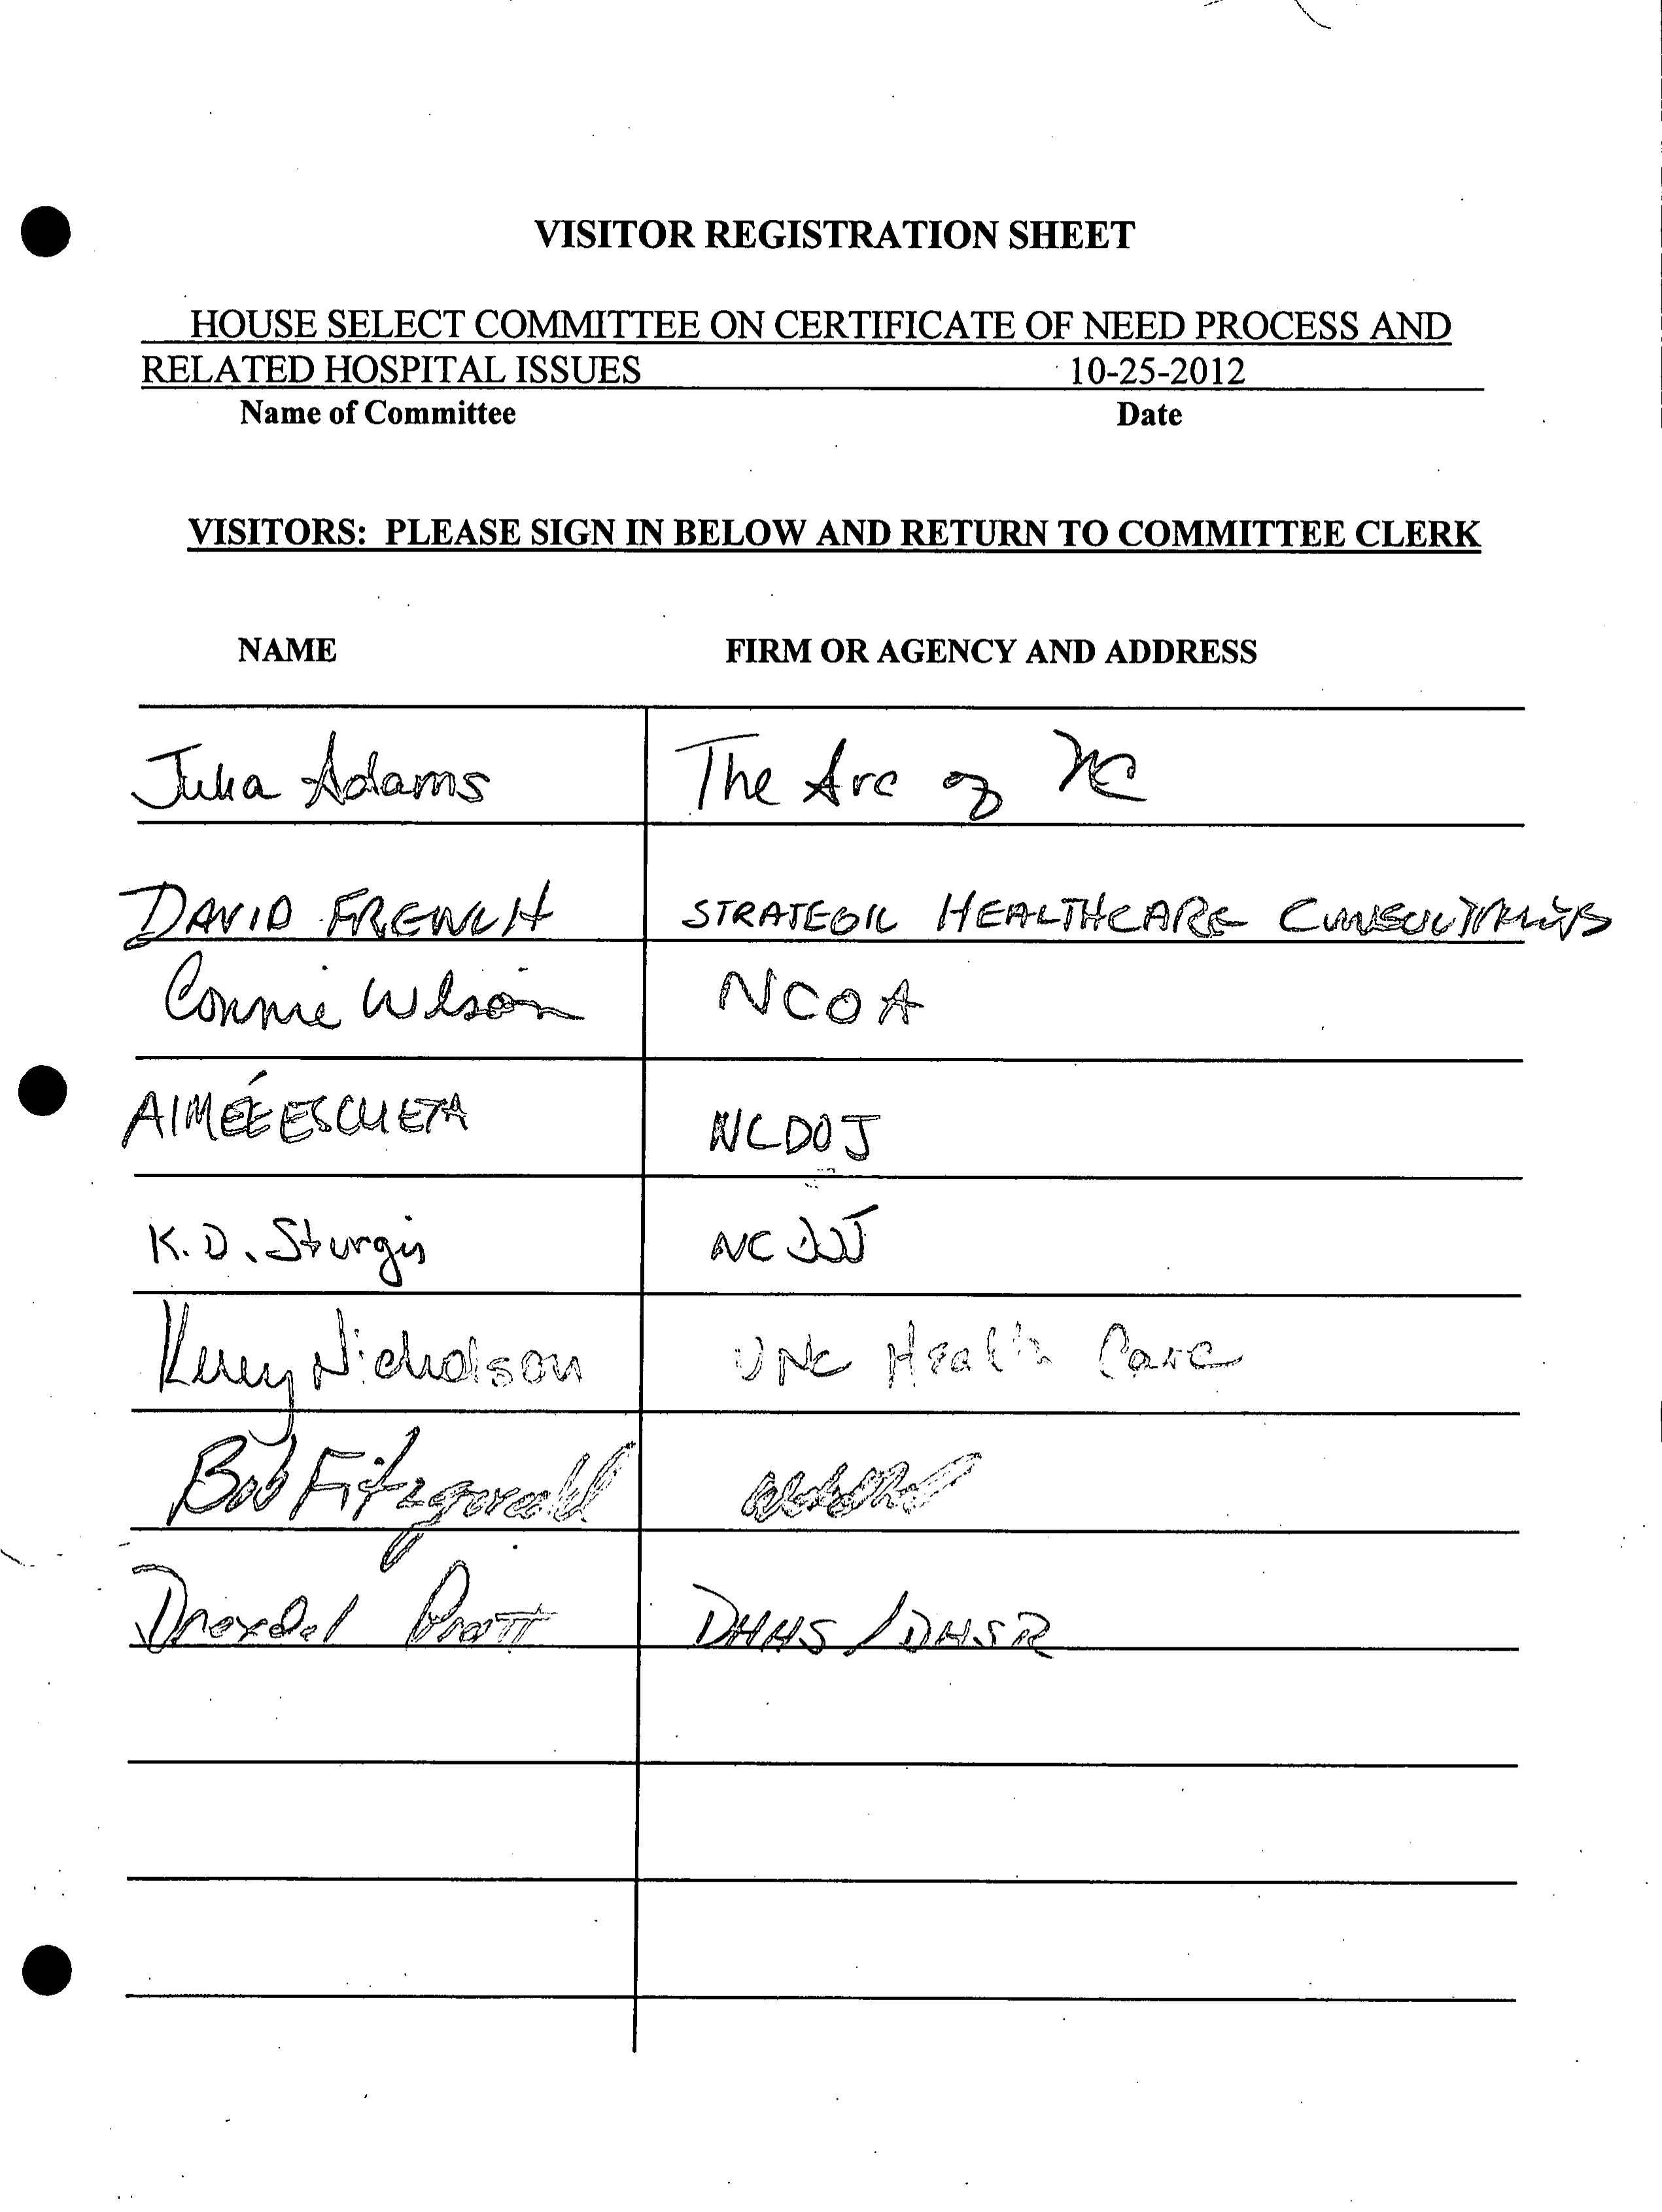 VISITOR REGISTRATION SHEET
HOUSE SELECT COMMITTEE ON CERTIFICATE OF NEED PROCESS AND
RELATED HOSPITAL ISSUES 10-25-2012
Name of Committee Date
VISITORS: PLEASE SIGN IN BELOW AND RETURN TO COMMITTEE CLERK
NAME FIRM OR AGENCY AND ADDRESS
Julia Adams The Arc of NC
DAVID FRENCH STRATEGIC HEALTHCARE CONSULTANTS
Connie Wilson NCOA
AIMÉE ESCUETA NCDOJ
K.D. Sturgis NC DOJ
Nicholson UNC Health Care
Bob Fitzgerald
Drexdal Pratt DHHS / DHSR